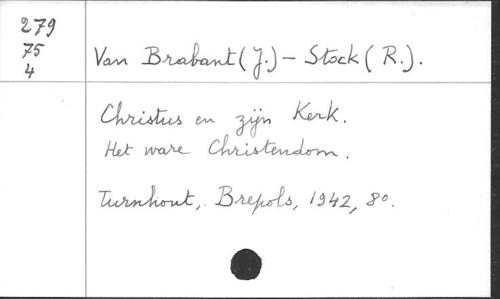 279
75
4
Van Brabant (J.) – Stock (R.).
Christus en zijn Kerk.
Het ware Christendom.
Turnhout, Brepols, 1942, 8o.